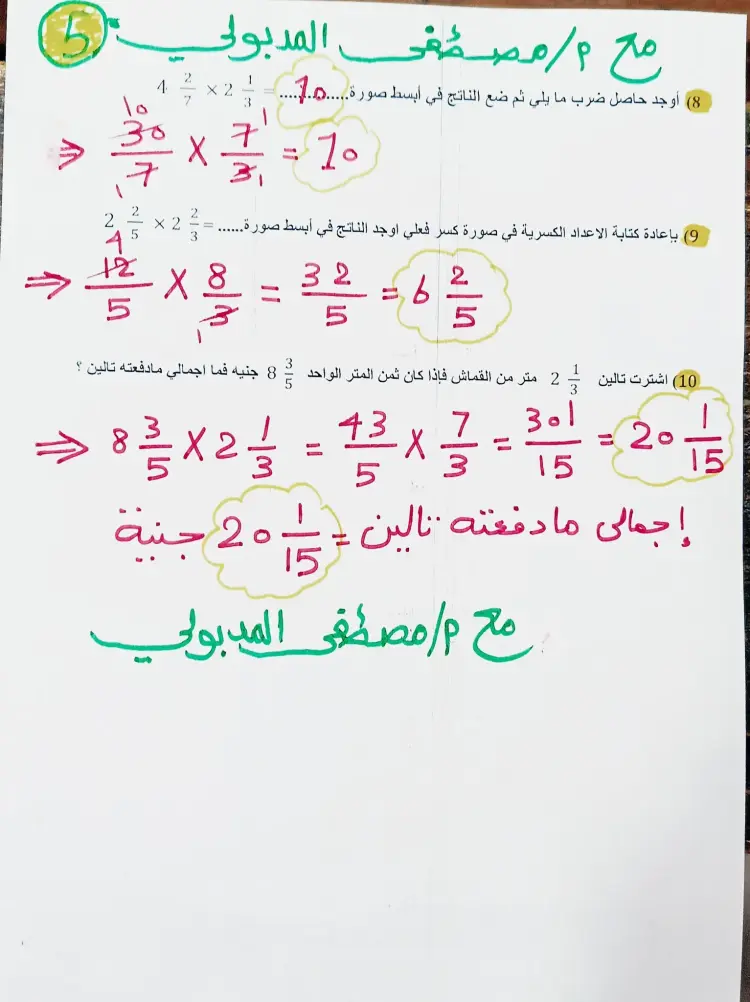 5 مع م/مصطفى المدبولي
8) أوجد حاصل ضرب ما يلي ثم ضع الناتج في أبسط صورة.............. = 4 2/7 × 2 1/3 10
⇒ 30/7 × 7/3 = 10 10 1 1 1
9) بإعادة كتابة الاعداد الكسرية في صورة كسر فعلي اوجد الناتج في أبسط صورة......= 2 2/5 × 2 2/3
⇒ 12/5 × 8/3 = 32/5 = 6 2/5 4 1
10) اشترت تالين 2 1/3 متر من القماش فإذا كان ثمن المتر الواحد 8 3/5 جنيه فما اجمالي مادفعته تالين ؟
⇒ 8 3/5 × 2 1/3 = 43/5 × 7/3 = 301/15 = 20 1/15
إجمالى مادفعته تالين = 20 1/15 جنية
مع م/مصطفى المدبولي